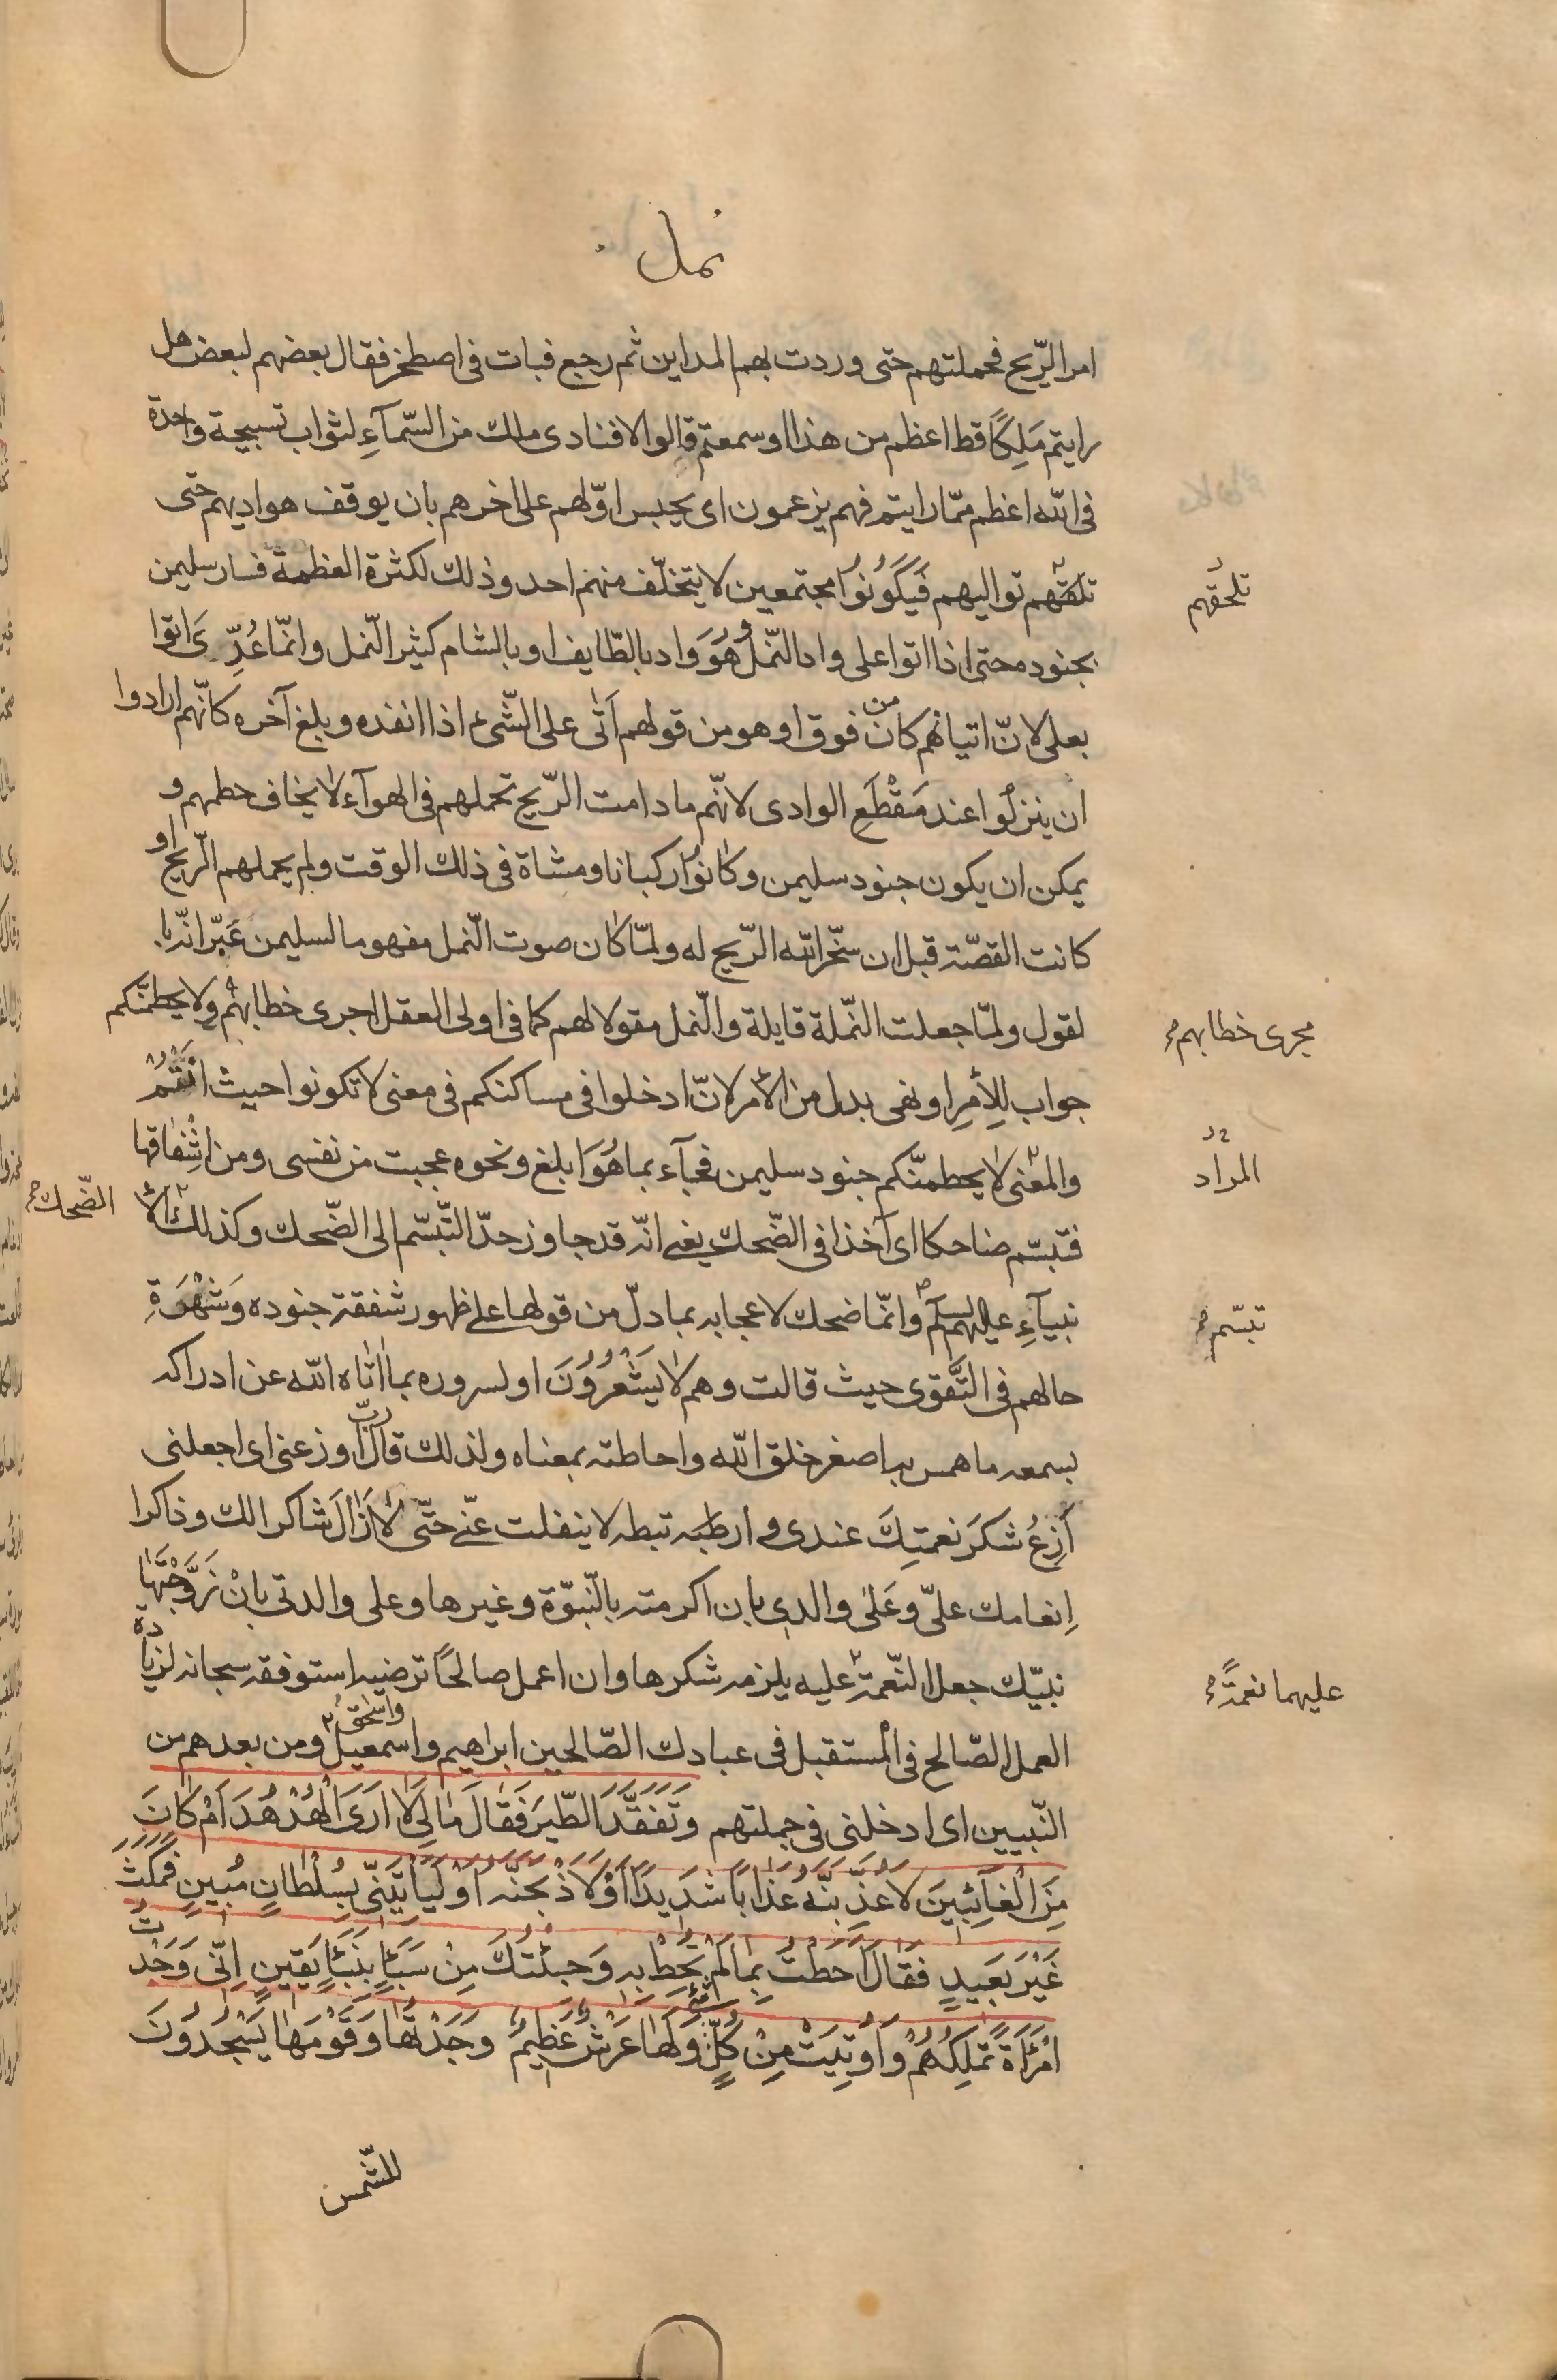 نمل
امر الرّيح فحملتهم حتى وردت بهم المداين ثم رجع فبات فى اصطخر فقال بعضهم لبعض هل
رايتم مَلِكًا قط اعظم من هذا او سمعتم قالوا لا فنادى ملك من السّمآءِ لثواب تسبيحة واحدة
فى الله اعظم ممّا رايتم فهم يزعمون اى يحبس اوّلهم على اخرهم بان يوقف هواديهم حتى
تلقهم تواليهم فَيَكُونُوا مجتمعين لا يتخلّف منهم احد وذلك لكثرة العظمة فسار سليمن
تلحقهم
بجنوده حتى اذا اتوا على واد النّمل وهُوَ واد بالطّايف او بالشام كثير النّمل وانّما عُدِّىَ اتوا
بعلى لانّ اتيانهم كان من فوق او هو من قولهم اَتٰى على الشّىء اذا انفده وبلغ آخره كانّهم ارادوا
ان ينزلُوا عند مَقْطَعِ الوادى لانّهم ما دامت الرّيح تحملهم فى الهوآء لا يخاف حطمهم و
يمكن ان يكون جنود سليمن وكانوُا ركبانا ومشاة فى ذلك الوقت ولم يحملهم الرّيح او
كانت القصّة قبل ان سخّر الله الرّيح له ولمّا كان صوت النّمل مفهوما لسليمن عَبّر انّه با
لقول ولمّا جعلت النّملة قايلة والنّمل مقولا لهم كما فى اولى العقل اجرى خطابهم ولا يحطمنّكم
مجرى خطابهم
جواب لِلأمرِ او نهى بدل من الامر لانّ ادخلوا فى مساكنكم فى معنى لا تكونوا حيث انتم
والمعنى لا يحطمنّكم جنود سليمن فجآء بما هُوَ ابلغ ونحوه عجبت من نفسى ومن اشفاقها
المراد
فتبسّم ضاحكا اى آخذا فى الضّحك يعنى انّه قد جاوز حدّ التّبسّم الى الضّحك وكذلك الا
الضّحك
نبيآءِ عليهم السلم وانّما ضحك لاعجابه بما دلّ من قولها على ظهور شفقة جنوده وَشهْرَةِ
تبسّم
حالهم فى التَّقوى حيث قالت وهم لا يَشْعُرُونَ او لسروره بما اتاه الله عن ادراكه
بسمعه ما همس به اصغر خلق الله واحاطته بمعناه ولذلك قال ربّ اوزعنى اى اجعلنى
أَزِعُ شكرَ نعمتِكَ عندى و ارتبطه لا ينفلت عنّى حتّى لا ازالَ شاكرا لك وذاكرا
اِنعامك علىّ وعَلىٰ والدى بان اكرمته بالنّبوّة وغيرها وعلى والدتى بانْ زَوَّجْتَهٰا
نبيّك جعل النّعمة عليه يلزمه شكرها وان اعمل صالحًا ترضيه استوفقه سبحانه لزيادة
عليهما نعمَةً
العمل الصّالح فى المستقبل فى عبادك الصّالحين ابراهيم واسمعيل واسْحق ومن بعدهم من
النّبيين اى ادخلنى فى جملتهم وَتَفَقَّدَ الطّيرَ فَقالَ مٰالِىَ لٰا اَرَى الْهُدْهُدَ اَمْ كانَ
مِنَ الْغآئِبينَ لَاُعَذِّبَنَّهُ عَذٰابًا شَديدًا اَوْ لَاَذْبَحَنَّهُ اَوْ لَيَاْتِيَنّى بِسُلْطانٍ مُبينٍ فَمَكَثَ
غَيْرَ بَعيدٍ فَقالَ اَحَطْتُ بِمٰا لَمْ تُحِطْ بِهِ وَجِئْتُكَ مِنْ سَبَأٍ بِنَبَأٍ يَقينٍ اِنّى وَجَدْتُ
امْرَاَةً تَمْلِكُهُمْ وَاُوتِيَتْ مِنْ كُلِّ شَىْءٍ وَلَهٰا عَرْشٌ عَظيمٌ وَجَدْتُهٰا وَقَوْمَهٰا يَسْجُدُونَ
للشّمس